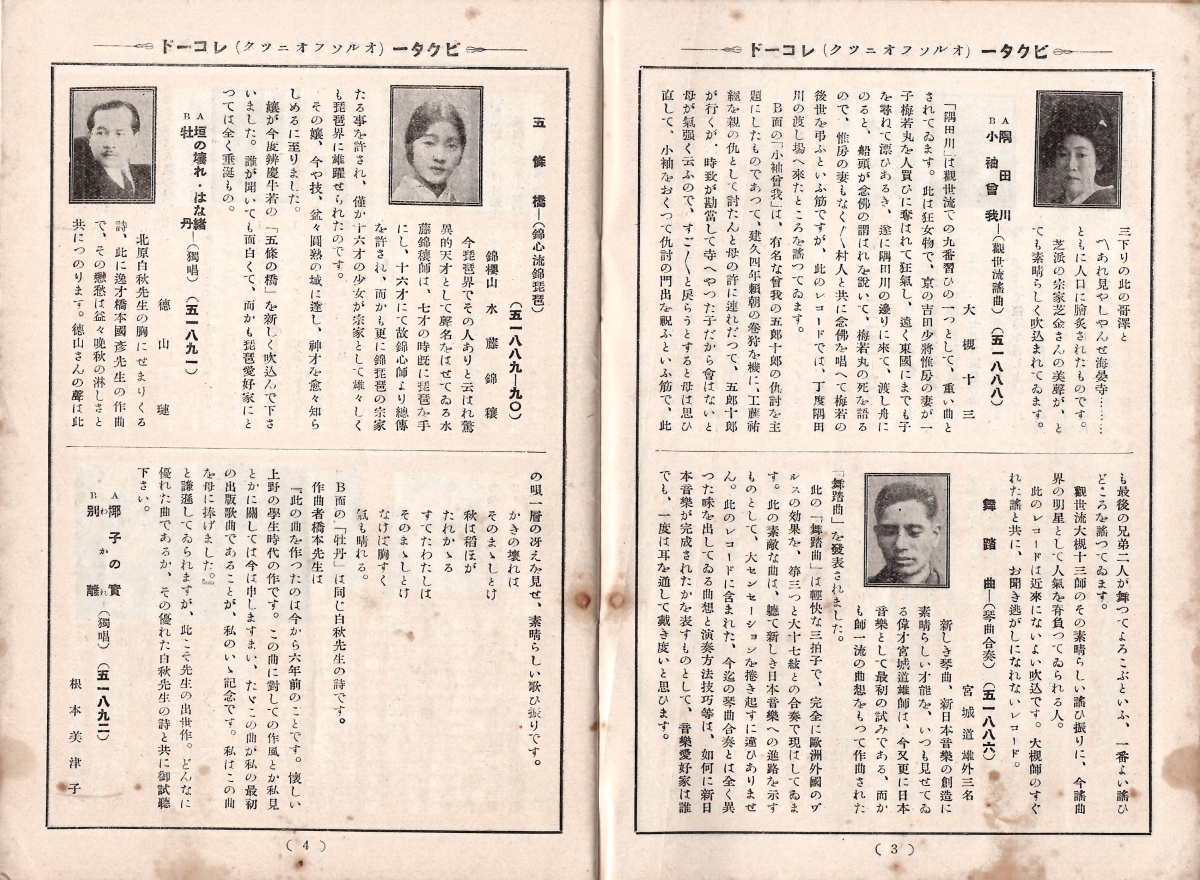 ビクター(オルソフオニツク)レコード
三下りの此の哥澤と
〽あれ見やしやんせ海晏寺………
ともに人口に膾炙されたものです。
芝派の宗家芝金さんの美聲が、と
ても素晴らしく吹込まれてゐます。
A 隅田川
B 小袖曾我
―(觀世流謠曲)(五一八八八)
大槻十三
「隅田川」は觀世流での九番習ひの一つとして、重い曲と
されてゐます。此は狂女物で、京の吉田少將惟房の妻が一
子梅若丸を人買ひに奪はれて狂氣し、遠く東國にまでも子
を尋ねて漂ひあるき、遂に隅田川の邊りに來て、渡し舟に
のると、船頭が念佛の謂はれを說いて、梅若丸の死を語る
ので、惟房の妻もなく〳〵村人と共に念佛を唱へて梅若の
後世を弔ふといふ筋ですが、此のレコードでは、丁度隅田
川の渡し場へ來たところを謠つてゐます。
B面の「小袖曾我」は、有名な曾我の五郎十郎の仇討を主
題にしたものであつて、建久四年賴朝の卷狩を機に、工藤祐
經を親の仇として討たんと母の許に連れだつて、五郎十郎
が行くが、時致が勘當して寺へやつた子だから會はないと
母が氣强く云ふので、すご〳〵と戾らうとすると母は思ひ
直して、小袖をおくつて仇討の門出を祝ふといふ筋で、此
も最後の兄弟二人が舞つてよろこぶといふ、一番よい謠ひ
どころを謠つてゐます。
觀世流大槻十三師のその素晴らしい謠ひ振りに、今謠曲
界の明星として人氣を背負つてゐられる人。
此のレコードは近來にないよい吹込です。大槻師のすぐ
れた謠と共に、お聞き逃がしになれないレコード。
舞踏曲―(琴曲合奏)(五一八八六)
宮城道雄外三名
新しき琴曲、新日本音樂の創造に
素晴らしい才能を、いつも見せてゐ
る偉才宮城道雄師は、今又更に日本
音樂として最初の試みである、而か
も師一流の曲想をもつて作曲された
「舞踏曲」を發表されました。
此の「舞踏曲」は輕快な三拍子で、完全に歐洲外國のヴ
ルスの効果を、箏三つと大十七絃との合奏で現はしてゐま
す。此の素敵な曲は、軈て新しき日本音樂への進路を示す
ものとして、大センセーションを捲き起すに違ひありませ
ん。此のレコードに含まれた、今迄の琴曲合奏とは全く異
つた味を出してゐる曲想と演奏方法技巧等は、如何に新日
本音樂が完成されたかを表すものとして、音樂愛好家は誰
でも、一度は耳を通して戴き度いと思ひます。
(3)
ビクター(オルソフオニツク)レコード
五條橋―(錦心流錦琵琶)(五一八八九―九〇)
錦櫻山 水藤錦穰
今琵琶界でその人ありと云はれ驚
異的天才として聲名をはせてゐる水
藤錦穰師は、七才の時旣に琵琶を手
にし、十六才にて故錦心師より總傳
を許され、而かも更に錦琵琶の宗家
たる事を許され、僅か十六才の少女が宗家として雄々しく
も琵琶界に雄躍せられたのです。
その孃、今や技、益々圓熟の域に達し、神才を愈々知ら
しめるに至りました。
孃が今度辨慶牛若の「五條の橋」を新しく吹込んで下さ
いました。誰が聞いても面白くて、而かも琵琶愛好家にと
つては全く垂涎もの。
A 垣の壞れ・はな緒
B 牡丹
―(獨唱)(五一八九一)
德山璉
北原白秋先生の胸にせまりくる
詩、此に逸才橋本國彥先生の作曲
で、その戀愁は益々晚秋の淋しさと
共につのります。德山さんの聲は此
の唄一層の冴えを見せ、素晴らしい歌ひ振りです。
かきの壞れは
そのまゝしとけ
秋は稻ほが
たれかゝる
すてたわたしは
そのまゝしとけ
なけば胸すく
氣も晴れる。
B面の「牡丹」は同じ白秋先生の詩です。
作曲者橋本先生は
『此の曲を作つたのは今から六年前のことです。懷しい
上野の學生時代の作です。この曲に對しての作風とか私見
とかに關しては今は申しますまい、たゞこの曲が私の最初
の出版歌曲であることが、私のいゝ記念です。私はこの曲
を母に捧げました。』
と謙遜してゐられますが、此こそ先生の出世作。どんなに
優れた曲であるか、その優れた白秋先生の詩と共に御試聽
下さい。
A 椰子の實
B 別離(わかれ)
(獨唱)(五一八九二)
根本美津子
(4)